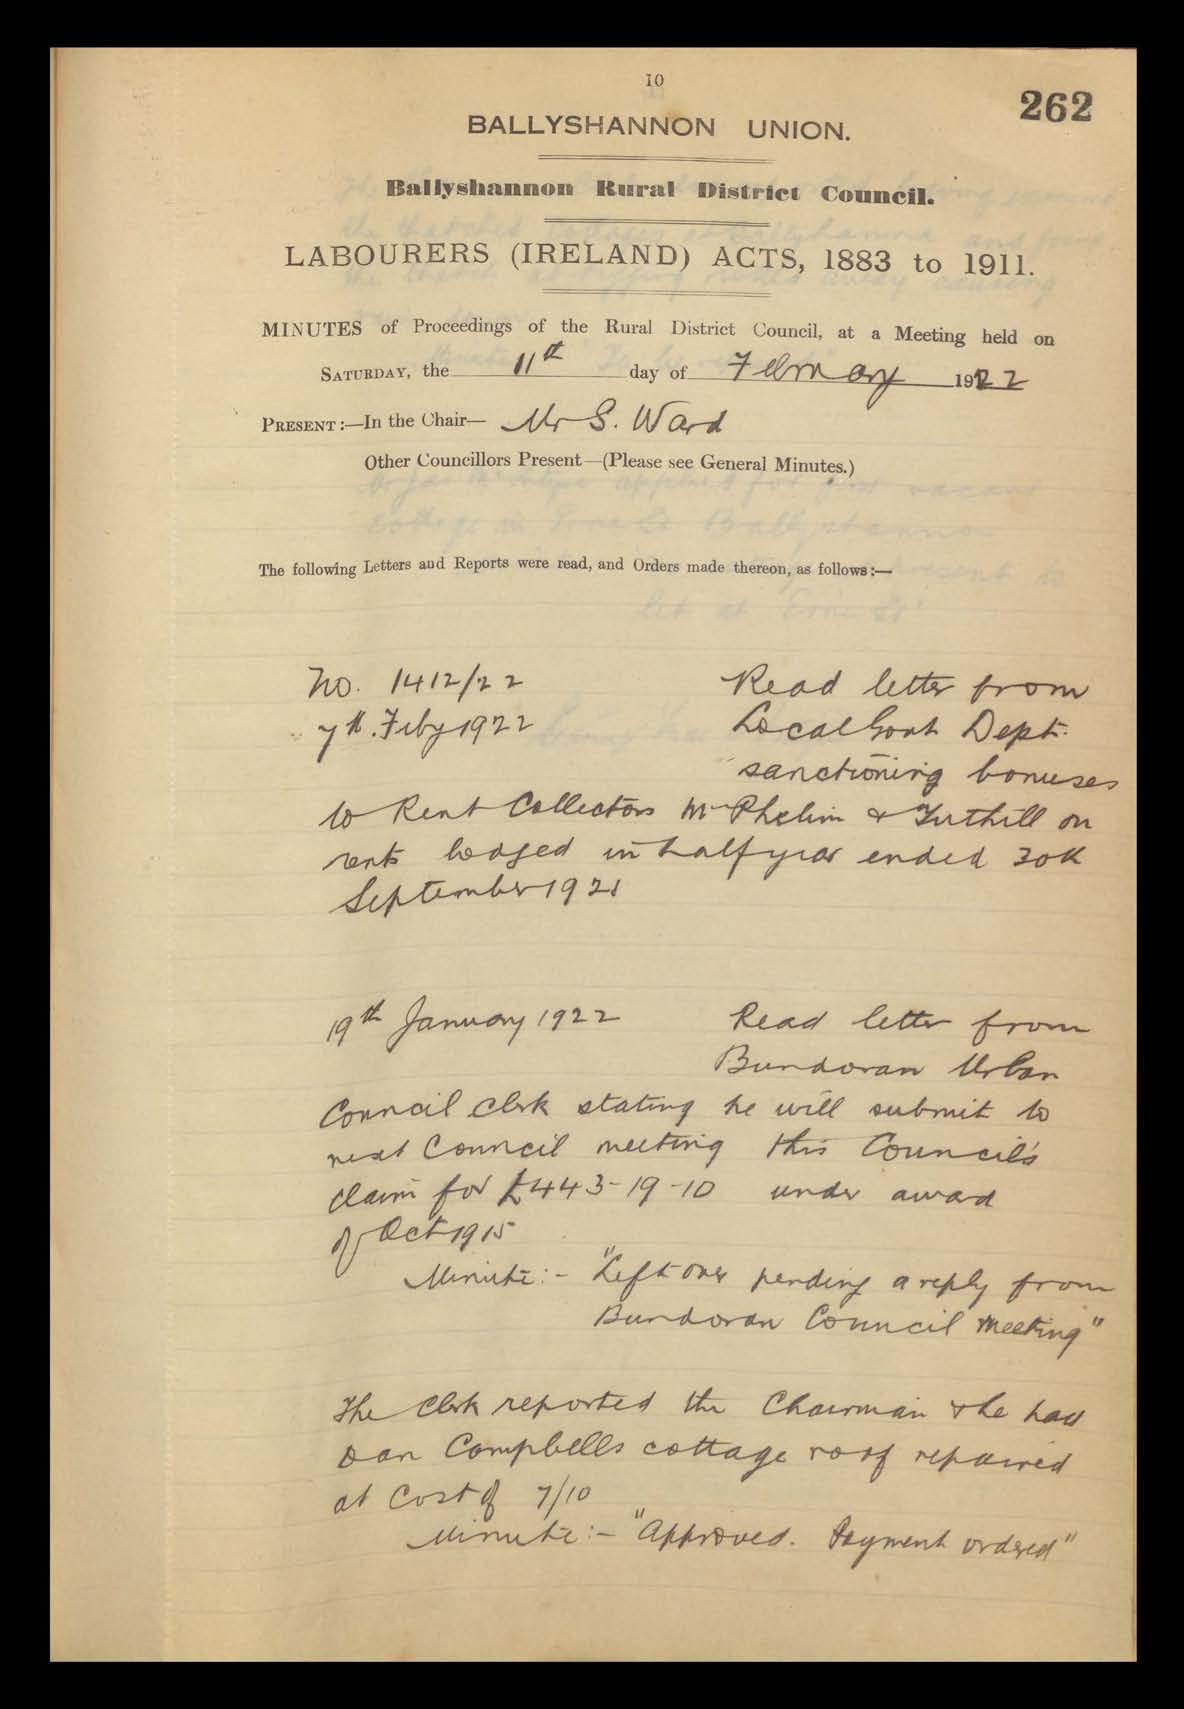 10
262
BALLYSHANNON UNION.
Ballyshannon Rural District Council.
LABOURERS (IRELAND) ACTS, 1883 to 1911.
MINUTES of Proceedings of the Rural District Council, at a Meeting held on
SATURDAY, the 11th day of February 1922
PRESENT:—In the Chair— Mr S. Ward
Other Councillors Present—(Please see General Minutes.)
The following Letters and Reports were read, and Orders made thereon, as follows:—
No. 1412/22 Read letter from
7th. Feby 1922 Local Govt Dept.
sanctioning bonuses
to Rent Collectors McPhelim & Tuthill on
rents lodged in half year ended 30th
September 1921
19th January 1922 Read letter from
Bundoran Urban
Council Clerk stating he will submit to
next Council meeting this Council's
claim for £443-19-10 under award
of Oct 1915
Minute:- "Left over pending a reply from
Bundoran Council Meeting"
The Clerk reported the Chairman & he had
Dan Campbells cottage roof repaired
at Cost of 7/10
Minute:- "Approved. Payment ordered"